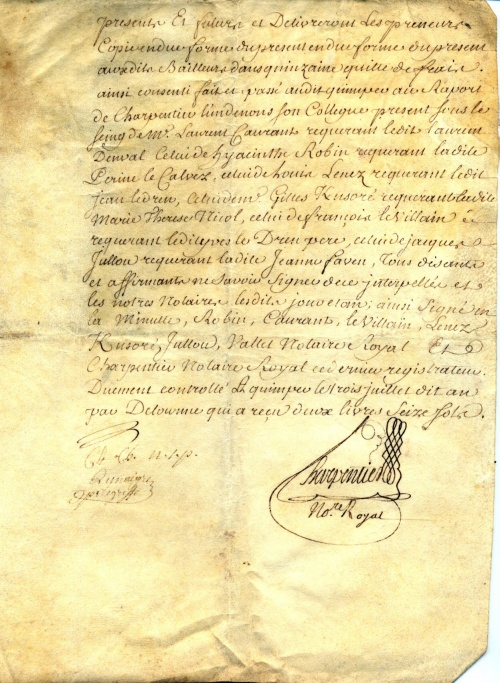 presents Et futurs et Delivreront Les preneurs
Copie en due forme du present en due forme du present
auxdits Bailleurs dans quinzaine quitte de frais.
ainsi consenti fait et passé audit quimper au Raport
de Charpentier l'un de nous son Collegue present sous le
seing de Mr. Laurent Caurant requerant ledit Laurent
Celui de hyacinthe Robin requerant ladite
Perine le Calvez, celui de Louis Lenez requerant ledit
Jean celui de Gilles Kusoré requerant ladite
Marie Therese Nicol, celui de françois le Villain
requerant ledit yves le Dren pere, celui de jacques
Jullou requerant ladite Jeanne faven, Tous disants
et affirmants ne savoir signer de ce interpellés et
les notres Notaires lesdits jour et an; ainsi signé en
la Minutte, Robin, Caurant, le Villain, Lenez
Kusoré, Jullou, Vallet Notaire Royal Et
Charpentier Notaire Royal ce dernier registrateur.
Duement controllé a quimper le trois juillet dit an
par Delounne qui a reçu deux livres seize sols.
Charpentier
No.re Royal